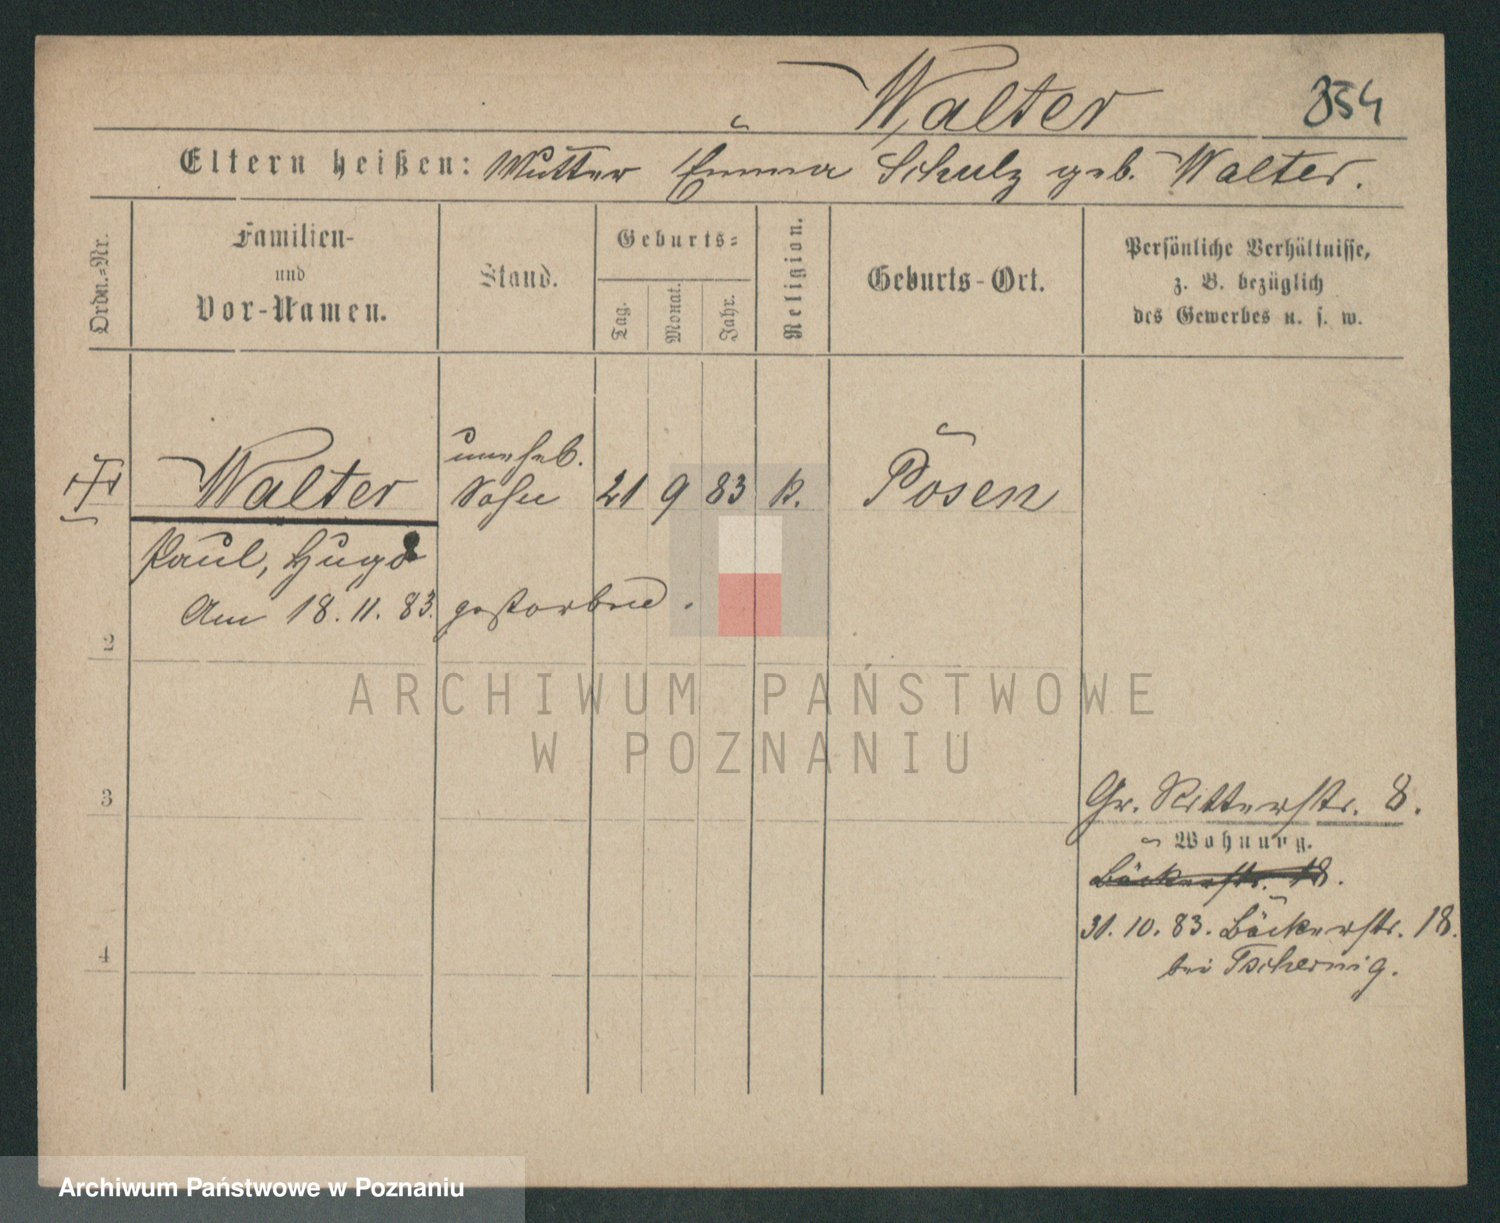 Walter
354
Eltern heißen: Mutter Emma Schulz geb. Walter.
Ordn.-Nr.
Familien-
und
Vor-Namen.
Stand.
Geburts-
Tag.
Monat.
Jahr.
Religion.
Geburts-Ort.
Persönliche Verhältnisse,
z. B. bezüglich
des Gewerbes u. s. w.
Walter
unehel.
Sohn
21 9 83 k. Posen
Paul, Hugo
Am 18. 11. 83. gestorben.
2
ARCHIWUM PAŃSTWOWE
W POZNANIU
3
Gr. Ritterstr. 8.
Wohnung.
Bäckerstr. 18.
31. 10. 83. Bäckerstr. 18.
4
bei Tschernig.
Archiwum Państwowe w Poznaniu